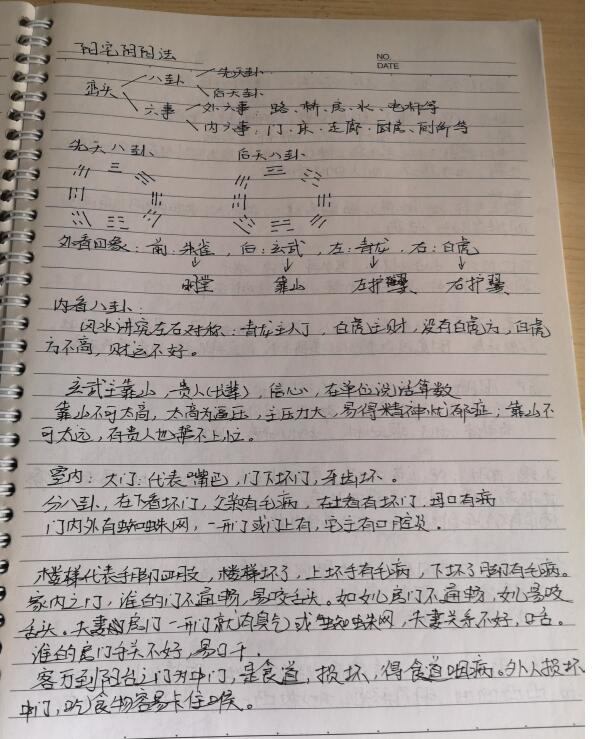 阳宅阴阳法
NO.
DATE
峦头 八卦 先天卦
后天卦
六事 外六事：路、桥、房、水、电杆等
内六事：门、床、走廊、厨房、厕所等
先天八卦 后天八卦
外看四象：前：朱雀，后：玄武，左：青龙，右：白虎
明堂 靠山 左护翼 右护翼
内看八卦：
风水讲究左右对称：青龙主人丁，白虎主财，没有白虎方，白虎
方不高，财运不好。
玄武主靠山，贵人(长辈)，信心，在单位说话算数
靠山不可太高，太高为逼压，主压力大，易得精神忧郁症；靠山不
可太远，有贵人也帮不上忙。
室内：大门：代表嘴巴，门下坏门，牙齿坏。
分八卦，在下看坏门，父亲有毛病，在上看有坏门，母口有病
门内外有蜘蛛网，一开门或门上有，宅主有口腔炎。
楼梯代表手脚四肢，楼梯坏了，上坏手有毛病，下坏了脚有毛病。
家内之门，谁的门不通畅，易咬舌头。如女儿房门不通畅，女儿易咬
舌头。夫妻房门一开门就闻臭气或蜘蛛网，夫妻关系不好，口舌。
谁的房门手头不好，易口干。
客厅到阳台之门为中门，是食道，损坏，得食道咽病。外人损坏
中门，吃食物容易卡住喉。